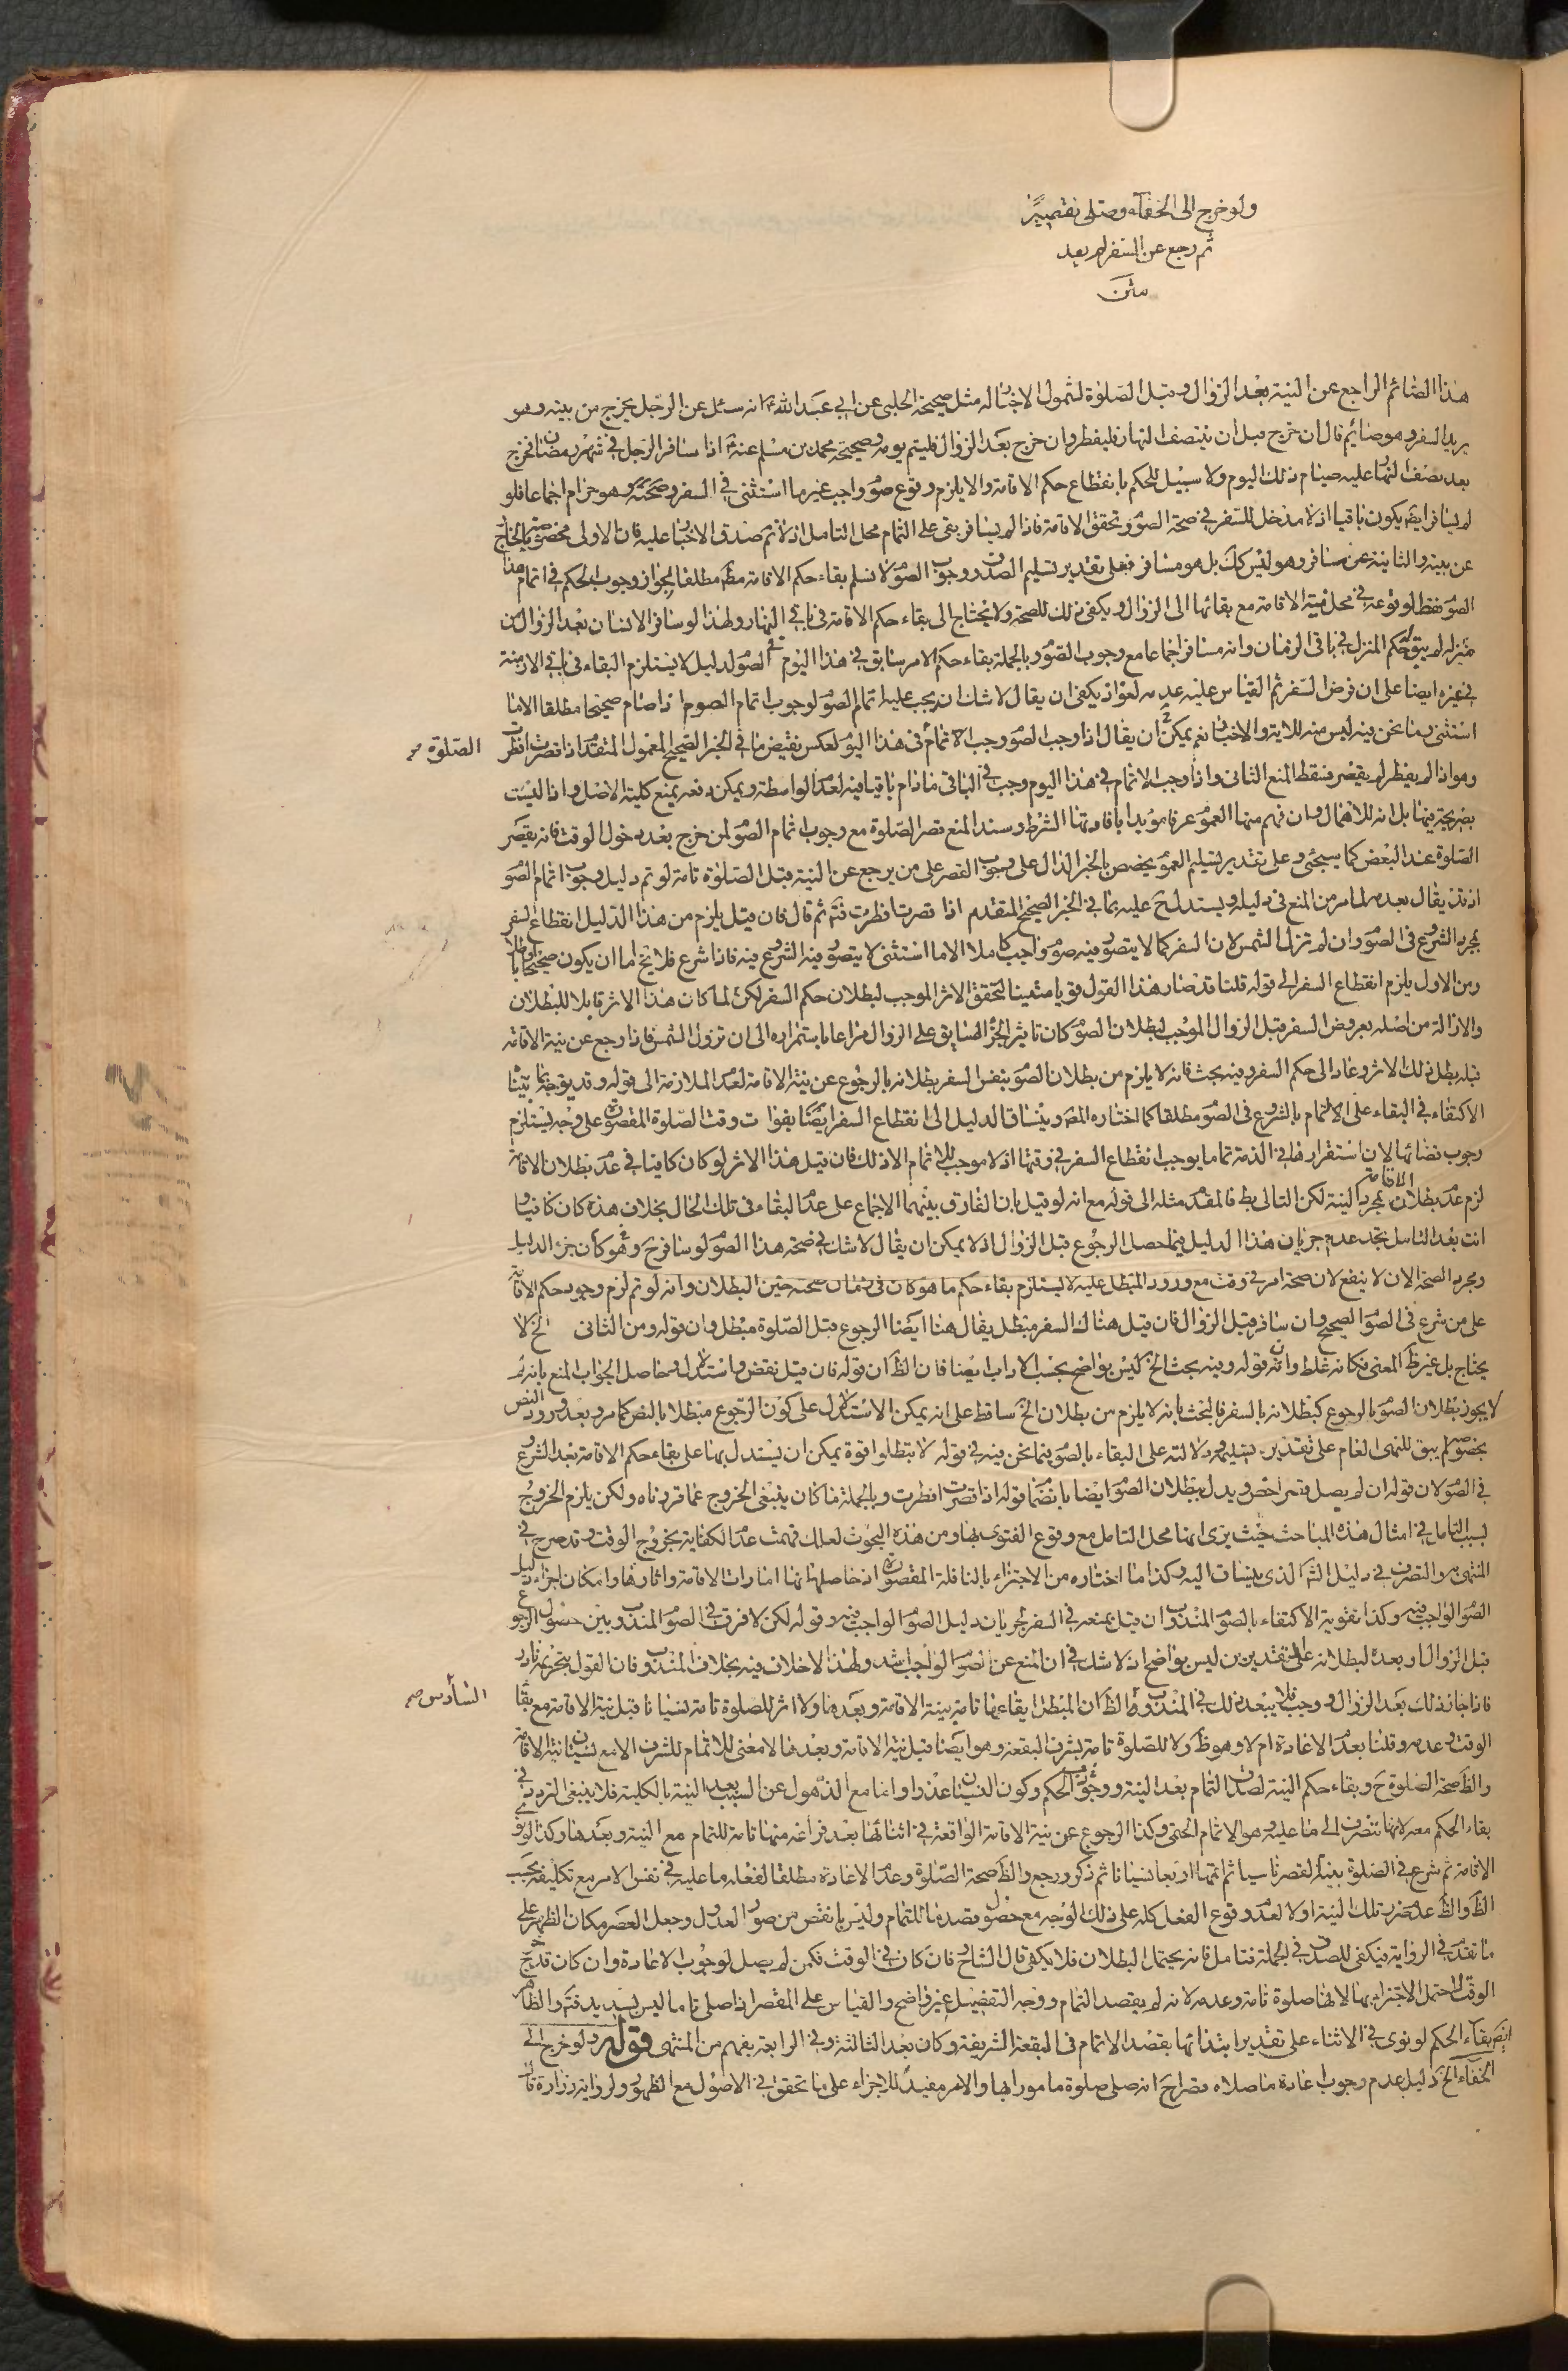 ولو خرج الى الخفاء وصلى تقصيرا
ثم رجع عن السفر لم يعد
متن
هذا الصائم الراجع عن النية بعد الزوال وقبل الصلوة لشمول الاخبار له مثل صحيحة الحلبي عن ابي عبد الله ع انه سئل عن الرجل يخرج من بيته وهو
يريد السفر وهو صائم قال ان خرج قبل ان ينتصف النهار فليفطر وان خرج بعد الزوال فليتم يومه وصحيحة محمد بن مسلم عنه ع اذا سافر الرجل في شهر رمضان فخرج
بعد نصف النهار عليه صيام ذلك اليوم ولا سبيل للحكم بانقطاع حكم الاقامة والا يلزم وقوع صوم واجب غير ما استثنى في السفر وصحته وهو حرام اجماعا فلو
لم يسافر ايضا يكون باقيا اذ لا مدخل للسفر في صحة الصوم وتحقق الاقامة فاذا لم يسافر بقى على التمام محل التامل اذ لا ثم صدق الاخبار عليه فان الاولى مخصوصة بالخارج
عن بيته والثانية عن سافر وهو ليس كك بل هو مسافر فعلى تقدير تسليم الصدق ووجوب الصوم لا نسلم بقاء حكم الاقامة مطلقا لجواز وجوب الحكم في اتمام هذا
الصوم فقط لوقوعه في محل نية الاقامة مع بقائها الى الزوال ويكفى ذلك للصحة ولا يحتاج الى بقاء حكم الاقامة في باقي النهار ولهذا لو سافر الانسان بعد الزوال من
منزله لم يبق له حكم المنزل في باقى الزمان وانه مسافر اجماعا مع وجوب الصوم وبالجملة بقاء حكم الامر سابق في هذا اليوم في الصوم لدليل لا يستلزم البقاء في باقي الازمنة
في غيره ايضا على ان فرض السفر ثم القياس عليه عدمه لغو اذ يكفى ان يقال لا شك ان يجب عليه اتمام الصوم لوجوب اتمام الصوم اذا صام صحيحا مطلقا الا ما
استثنى وما نحن فيه ليس منه للاية والاخبار نعم يمكن ان يقال اذا وجب الصوم وجب الاتمام في هذا اليوم لعكس نقيض ما في الخبر الصحيح المعمول المتقدم اذا قصرت افطرت
الصلوة صح
وهو اذا لم يفطر لم يقصر فسقط المنع الثانى واذا وجب الاتمام في هذا اليوم وجب في الباقى ما دام باقيا فيه لعدم الواسطة ويمكن دفعه بمنع كلية الاصل واذا ليست
بصريحة فيها بل انه للاهمال وان فهم منها العموم عرفا مؤيدا بافادتها الشرط وسند المنع قصر الصلوة مع وجوب اتمام الصوم لمن خرج بعد دخول الوقت فانه يقصر
الصلوة عند البعض كما يسجئ وعلى تقدير تسليم العموم يخصص بالخبر الدال على وجوب القصر على من يرجع عن النية قبل الصلوة تامة لو تم دليل وجوب اتمام الصوم
اذ قد يقال بعدمه لما مر من المنع في دليله ويستدل ح عليه بما في الخبر الصحيح المتقدم اذا قصرت افطرت فتم ثم قال فان قيل يلزم من هذا الدليل انقطاع السفر
بمجرد الشروع في الصوم وان لم تزل الشمس لان السفر كما لا يتصور فيه صوم واجب كاملا الا ما استثنى لا يتصور فيه الشروع فيه فاذا شرع فلا يخ اما ان يكون صحيحا او باطلا
ومن الاول يلزم انقطاع السفر الى قوله قلنا قد صار هذا القول قويا متينا لتحقق الاثر الموجب لبطلان حكم السفر لكن لما كان هذا الاثر قابلا للبطلان
والازالة من اصله بعروض السفر قبل الزوال الموجب لبطلان الصوم كان تاثير الجزء السابق على الزوال مراعا باستمراره الى ان تزول الشمس فاذا رجع عن نية الاقامة
قبله بطل ذلك الاثر وعاد الى حكم السفر وفيه بحث فانه لا يلزم من بطلان الصوم بنفس السفر بطلانه بالرجوع عن نية الاقامة لعدم الملازمة الى قوله وقد يوجه بما بينا
الاكتفاء في البقاء على الاتمام بالشروع في الصوم مطلقا كما اختاره المصر وينساق الدليل الى انقطاع السفر ايضا بفوات وقت الصلوة المقصورة على وجه يستلزم
وجوب قضائها لان استقرارها في الذمة تماما يوجب انقطاع السفر في وقتها اذ لا موجب للاتمام الا ذلك فان قيل هذا الاثر لو كان كافيا في عدم بطلان الاقامة
لزم عدم بطلان الاقامة بمجرد النية لكن التالى بط فالمقدم مثله الى قوله مع انه لو قيل بان الفارق بينهما الاجماع على عدم البقاء في تلك الحال بخلاف هذه كان كافيا و
انت بعد التامل تجد عدم جريان هذا الدليل فيما حصل الرجوع قبل الزوال اذ لا يمكن ان يقال لا شك في صحة هذا الصوم لو سافر ح وهو كان جزء الدليل
ومجرد الصحة الان لا ينفع لان صحة امر في وقت مع ورود المبطل عليه لا يستلزم بقاء حكم ما هو كان في زمان صحته حين البطلان وانه لو تم لزم وجود حكم الاقامة
على من شرع في الصوم الصحيح وان سافر قبل الزوال فان قيل هناك السفر مبطل يقال هنا ايضا الرجوع قبل الصلوة مبطل وان قوله ومن الثانى الخ لا
يحتاج بل غير ظ المعنى فكانه غلط وانه قوله وفيه بحث الخ ليس بواضح بحسب الاداب ايضا فان الظ ان قوله فان قيل نقض واستدلال وحاصل الجواب المنع بانه لم
لا يجوز بطلان الصوم بالرجوع كبطلانه بالسفر فالبحث بانه لا يلزم من بطلان الخ ساقط على انه يمكن الاستدلال على كون الرجوع مبطلا بالنص كما مر وبعد ورود النص
بخصوصه لم يبق للنهى العام على تقدير تسليمه دلالته على البقاء بالصوم فيما نحن فيه في قوله لا تبطلوا قوة يمكن ان يستدل بها على بقاء حكم الاقامة بعد الشروع
في الصوم لان قوله ان لم يصل قصر اخص ويدل ببطلان الصوم ايضا بانضمام قوله اذا قصرت افطرت وبالجملة ما كان ينبغى الخروج عما قررناه ولكن يلزم الخروج
لسبب التامل في امثال هذه المباحث حيث يرى انها محل التامل مع وقوع الفتوى بها ومن هذه البحوث لعلك فهمت عدم الكفاية بخروج الوقت وقد صرح في
المنتهى والتصرف في دليل الش الذى ينساق اليه وكذا ما اختاره من الاجتزاء بالنافلة المقصورة اذ حاصلها انها امارات الاقامة واثارها وامكان اجزاء دليل
الصوم الواجب فيه وكذا تقوية الاكتفاء بالصوم المندوب ان قيل بمنعه في السفر لجريان دليل الصوم الواجب فيه وقوله لكن لا فرق في الصوم المندوب بين حصول الرجوع
قبل الزوال او بعده لبطلانه على التقديرين ليس بواضح اذ لا شك في ان المنع عن الصوم الواجب اشد ولهذا لا خلاف فيه بخلاف المندوب فان القول بتحريمه نادر
السادس صح
فاذا جاز ذلك بعد الزوال ووجب فلا يبعد ذلك في المندوب والظ ان المبطل ايقاعها تامة بنية الاقامة وبعدها ولا اثر للصلوة تامة نسيانا قبل نية الاقامة مع بقاء
الوقت وعدمه وقلنا بعدم الاعادة ام لا وهو ظ ولا للصلوة تامة بشرف البقعة وهو ايضا قبل نية الاقامة وبعدها لا معنى للاتمام للشرف الا مع نسيان نية الاقامة
والظ صحة الصلوة ح وبقاء حكم النية لصدق التمام بعد النية ووجوب الحكم وكون النسيان عذرا وانما مع الذهول عن السبب بعد النية بالكلية فلا ينبغى التردد في
بقاء الحكم معه لانها تنصرف الى ما عليه وهو الاتمام الحتمى وكذا الرجوع عن نية الاقامة الواقعة في اثنائها بعد فراغه منها تامة للتمام مع النية وبعدها وكذا لو نوى
الاقامة ثم شرع في الصلوة بنية القصر ناسيا ثم اتمها اربعا نسيانا ثم ذكر ورجع والظ صحة الصلوة وعدم الاعادة مطلقا لفعله ما عليه في نفس الامر مع تكليفه بحسب
الظ والظ عدم ضرر تلك النية اولا لعدم وقوع الفعل كله على ذلك الوجه مع حصول قصده ثانيا للتمام وليس بانقص من صور العدول وجعل العصر مكان الظهر على
ما تقدم في الرواية فيكفى للصدق في الجملة فتامل فانه يحتمل البطلان فلا يكفى قال الشارح فان كان في الوقت فكمن لم يصل لوجوب الاعادة وان كان قد خرج
الوقت احتمل الاجتزاء بها لانها صلوة تامة وعدمه لانه لم يقصد التمام ووجه التفصيل غير واضح والقياس على المقصر اذا صلى تاما ليس بسديد فتم والظاهر
ايضا بقاء الحكم لو نوى في الاثناء على تقدير ابتدائها بقصد الاتمام في البقعة الشريفة وكان بعد الثالثة وفي الرابعة يفهم من المنتهى قوله ولو خرج الى
الخفاء الخ دليل عدم وجوب اعادة ما صلاه قصرا ح انه صلى صلوة مامورا بها والامر مفيد للاجزاء على ما تحقق في الاصول مع الظهور ولرواية زرارة قال